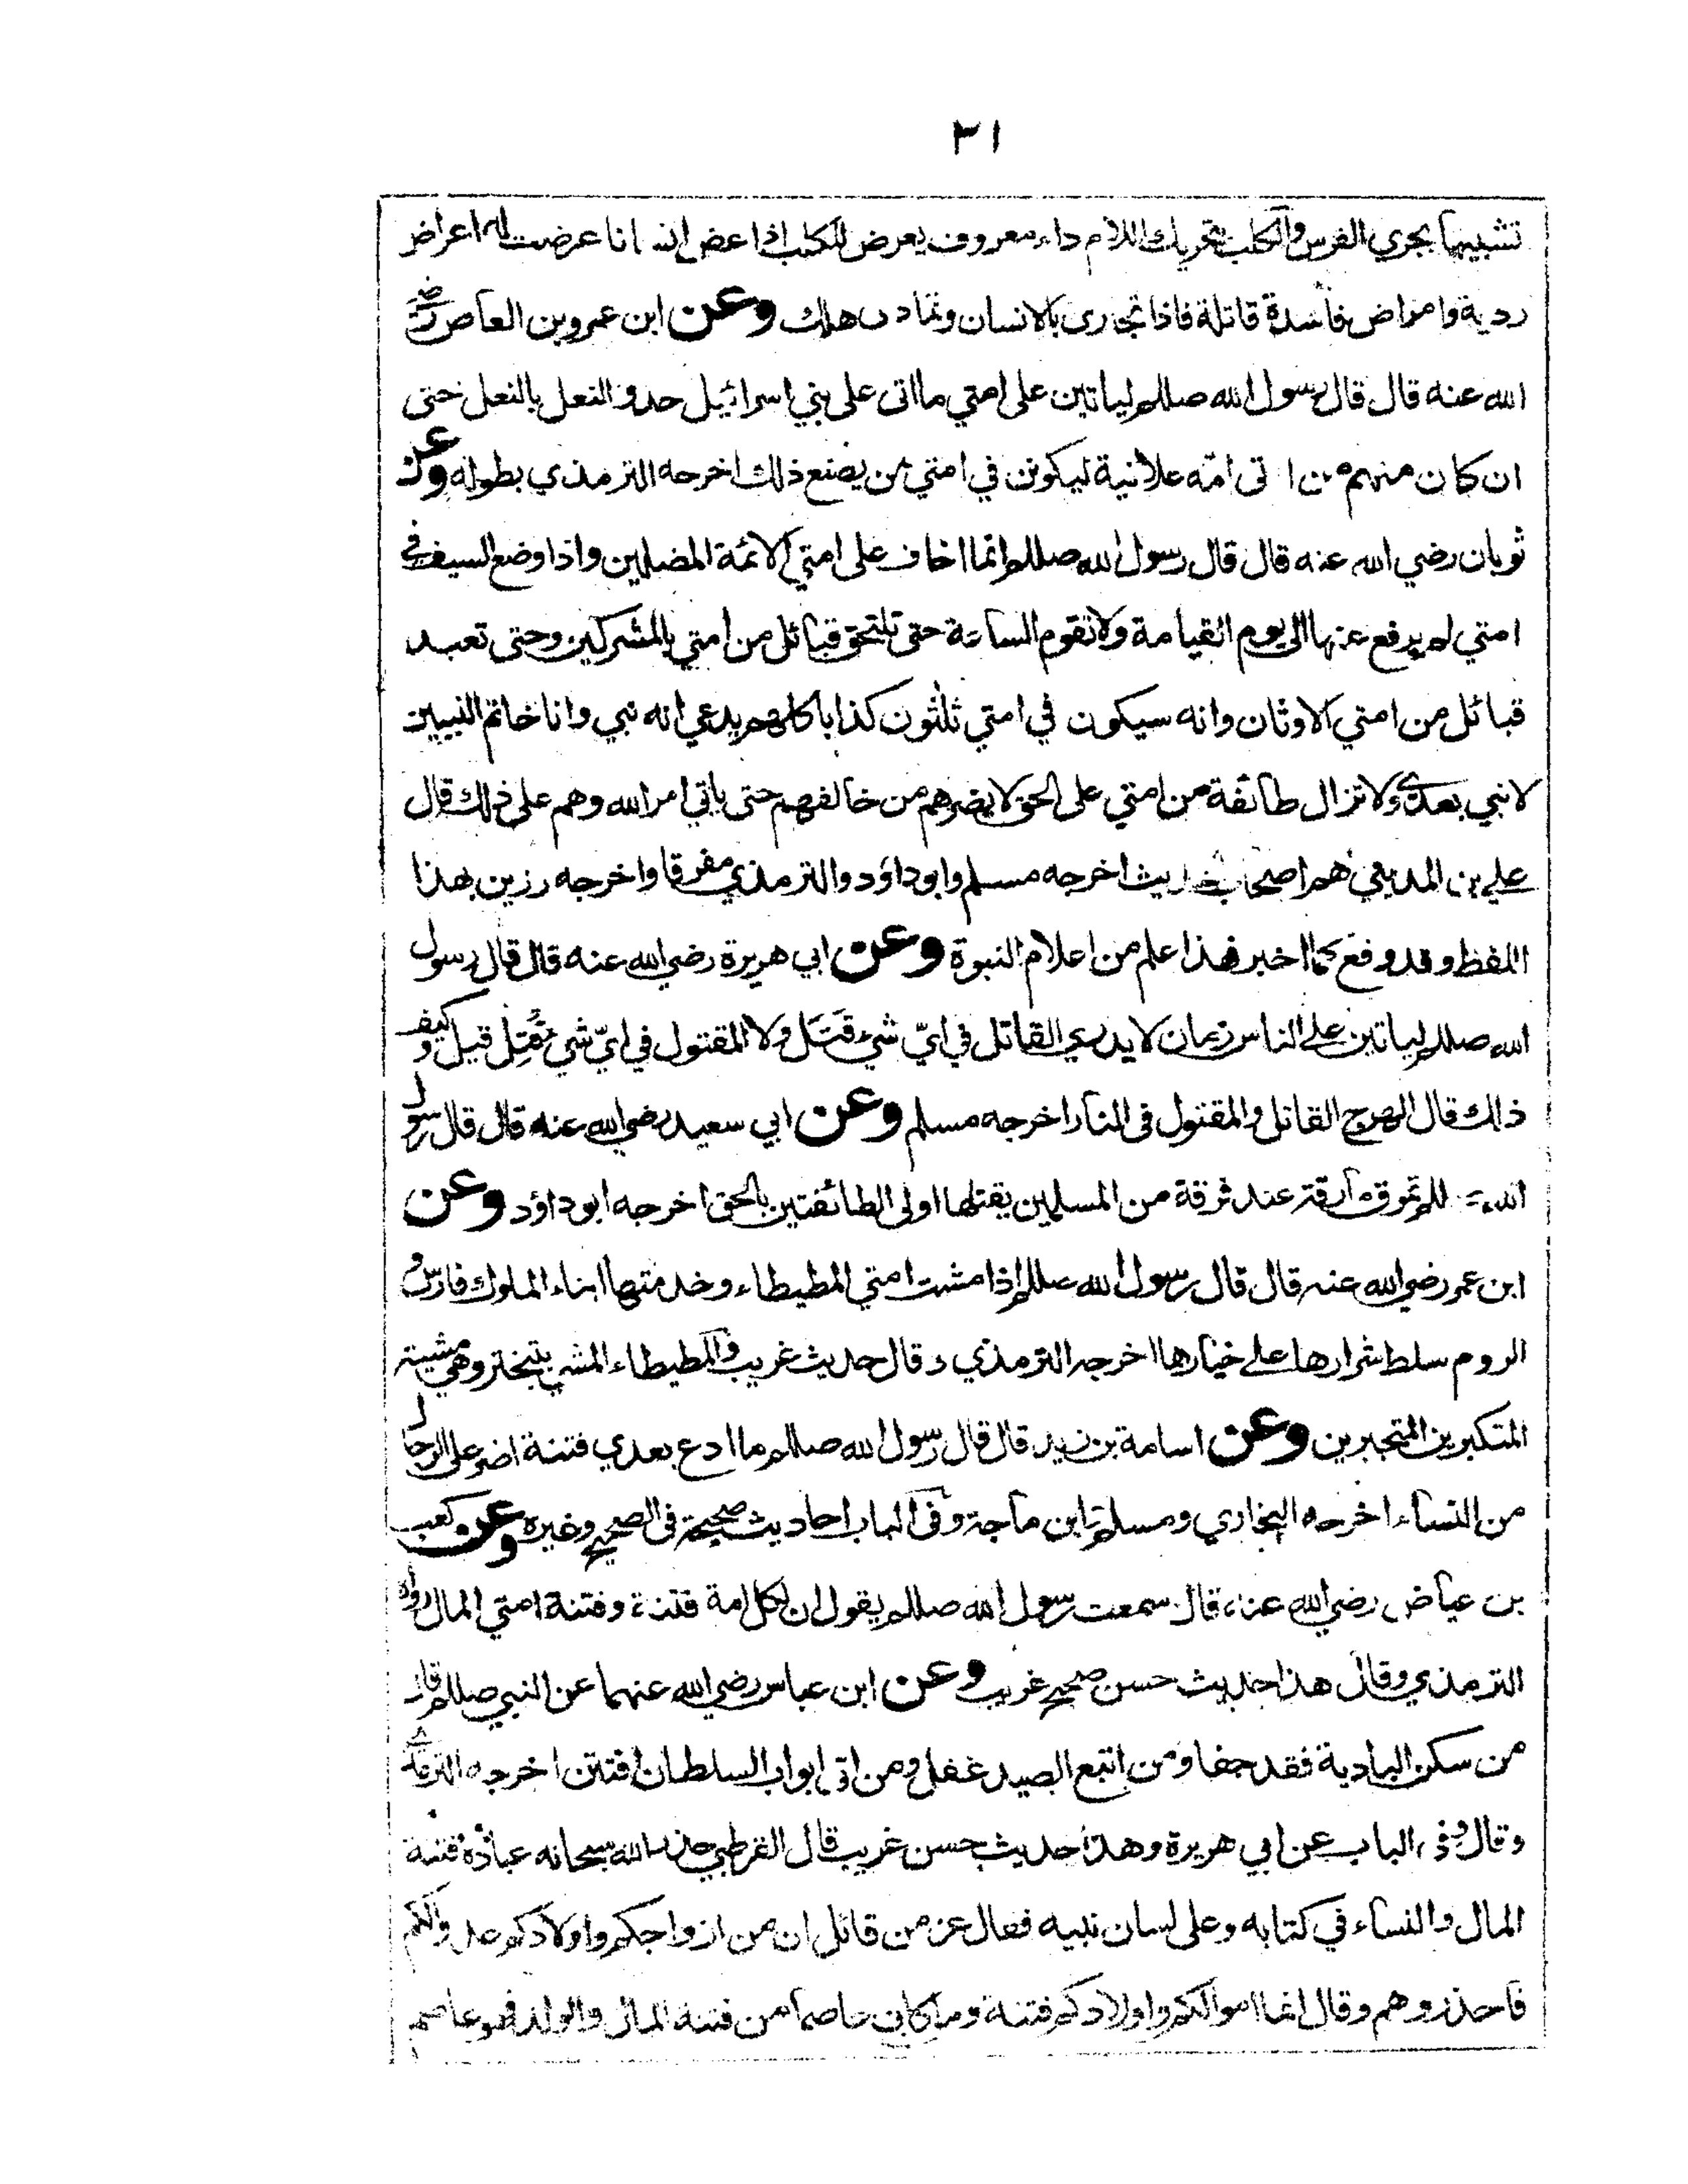 ٣١
تشبيها بجري الفرس والكلب بتحريك اللام داء معروف يعرض للكلب اذا عض انسانا عرضت له اعراض
ردية وامراض فاسدة قاتلة فاذا تجارى بالانسان وتمادى هلك وعن ابن عمرو بن العاص رضي
الله عنه قال قال رسول الله صللم لياتين على امتي ما اتى على بني اسرائيل حذو النعل بالنعل حتى
ان كان منهم من اتى امّه علانية ليكونن في امتي من يصنع ذلك اخرجه الترمذي بطوله وعن
ثوبان رضي الله عنه قال قال رسول الله صللم انما اخاف على امتي الائمة المضلين واذا وضع السيف في
امتي لم يرفع عنها الى يوم القيامة ولا تقوم الساعة حتى تلتحق قبائل من امتي بالمشركين وحتى تعبد
قبائل من امتي الاوثان وانه سيكون في امتي ثلثون كذابا كلهم يدعي انه نبي وانا خاتم النبيين
لا نبي بعدي ولا تزال طائفة من امتي على الحق لا يضرهم من خالفهم حتى ياتي امر الله وهم على ذلك قال
علي بن المديني هم اصحاب الحديث اخرجه مسلم وابو داؤد والترمذي مفرقا واخرجه رزين بهذا
اللفظ وقد وقع كما اخبر فهذا علم من اعلام النبوة وعن ابي هريرة رضي الله عنه قال قال رسول
الله صللم لياتين على الناس زمان لا يدري القاتل في ايّ شيء قَتَل ولا المقتول في ايّ شيء قُتِل قيل وكيف
ذلك قال الهرج القاتل والمقتول في النار اخرجه مسلم وعن ابي سعيد رضي الله عنه قال قال رسول
الله صللم تمرق مارقة عند فرقة من المسلمين يقتلها اولى الطائفتين بالحق اخرجه ابو داؤد وعن
ابن عمر رضي الله عنه قال قال رسول الله صللم اذا مشت امتي المطيطاء وخدمتها ابناء الملوك فارس و
الروم سلط شرارها على خيارها اخرجه الترمذي وقال حديث غريب والمطيطاء المشي بتبختر وهي مشية
المتكبرين المتجبرين وعن اسامة بن زيد قال قال رسول الله صللم ما ادع بعدي فتنة اضر على الرجال
من النساء اخرجه البخاري ومسلم وابن ماجة وفي الباب احاديث صحيحة في الصحيح وغيره وعن كعب
بن عياض رضي الله عنه قال سمعت رسول الله صللم يقول ان لكل امة فتنة وفتنة امتي المال رواه
الترمذي وقال هذا حديث حسن صحيح غريب وعن ابن عباس رضي الله عنهما عن النبي صللم قال
من سكن البادية فقد جفا ومن اتبع الصيد غفل ومن اتى ابواب السلطان افتتن اخرجه الترمذي
وقال وفي الباب عن ابي هريرة وهذا حديث حسن غريب قال القرطبي حذر الله سبحانه عباده فتنة
المال والنساء في كتابه وعلى لسان نبيه فقال عز من قائل ان من ازواجكم واولادكم عدوا لكم
فاحذروهم وقال انما اموالكم واولادكم فتنة وما كان عاصما من فتنة المال والولد فهو عاصم